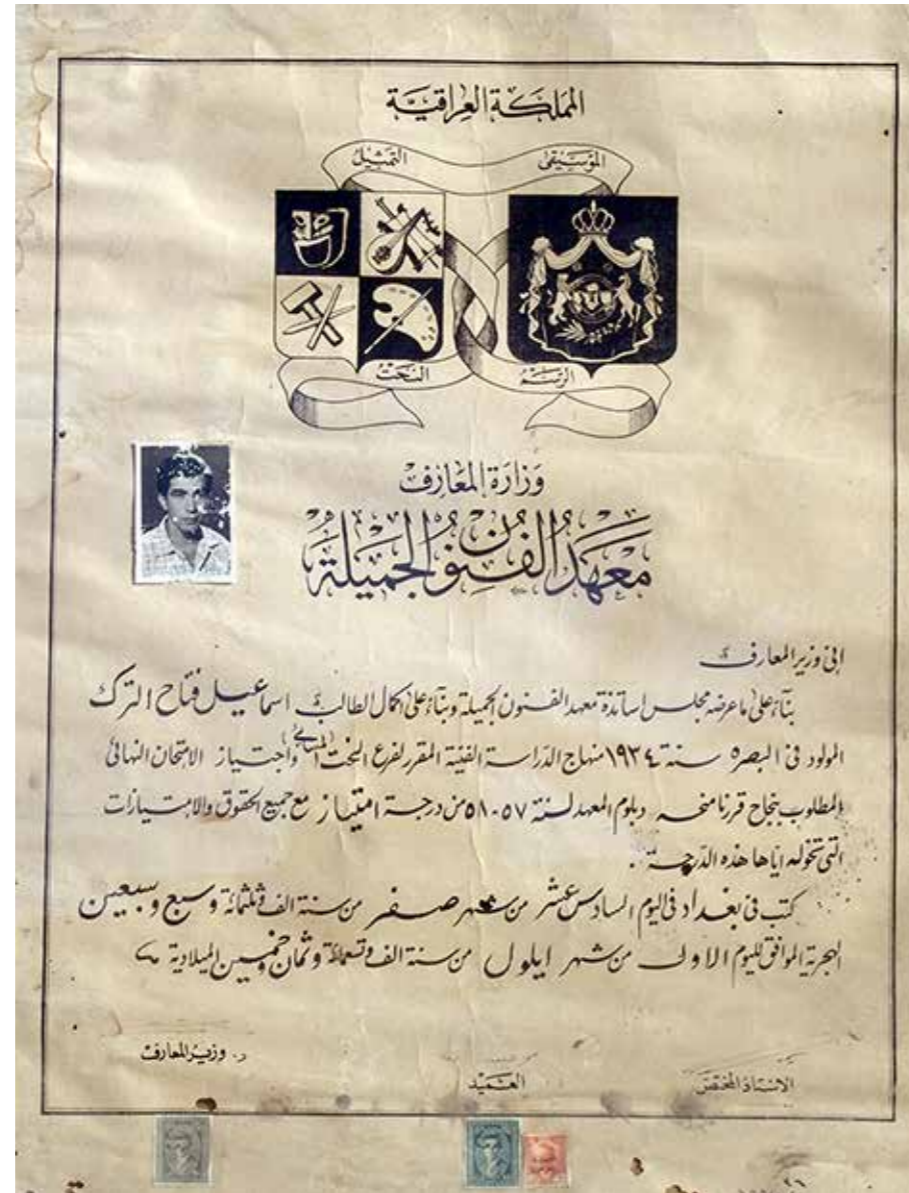 المملكة العراقية
الموسيقى
التمثيل
الرسم
النحت
وزارة المعارف
معهد الفنون الجميلة
اني وزير المعارف
بناءً على ما عرضه مجلس اساتذة معهد الفنون الجميلة وبناءً على اكمال الطالب اسماعيل فتاح الترك
المولود في البصره سنة ١٩٣٤ منهاج الدراسة الفنية المقرر لفرع النحت (المسائي) واجتياز الامتحان النهائي
المطلوب بنجاح قررنا منحه دبلوم المعهد لسنة ٥٧-٥٨ من درجة امتياز مع جميع الحقوق والامتيازات
التي تخوله اياها هذه الدرجة .
كتب في بغداد في اليوم السادس عشر من شهر صفر من سنة الف وثلثمائة وسبع وسبعين
الهجرية الموافق لليوم الاول من شهر ايلول من سنة الف وتسعمائة وثمان وخمسين الميلادية
وزير المعارف
العميد
الاستاذ المختص